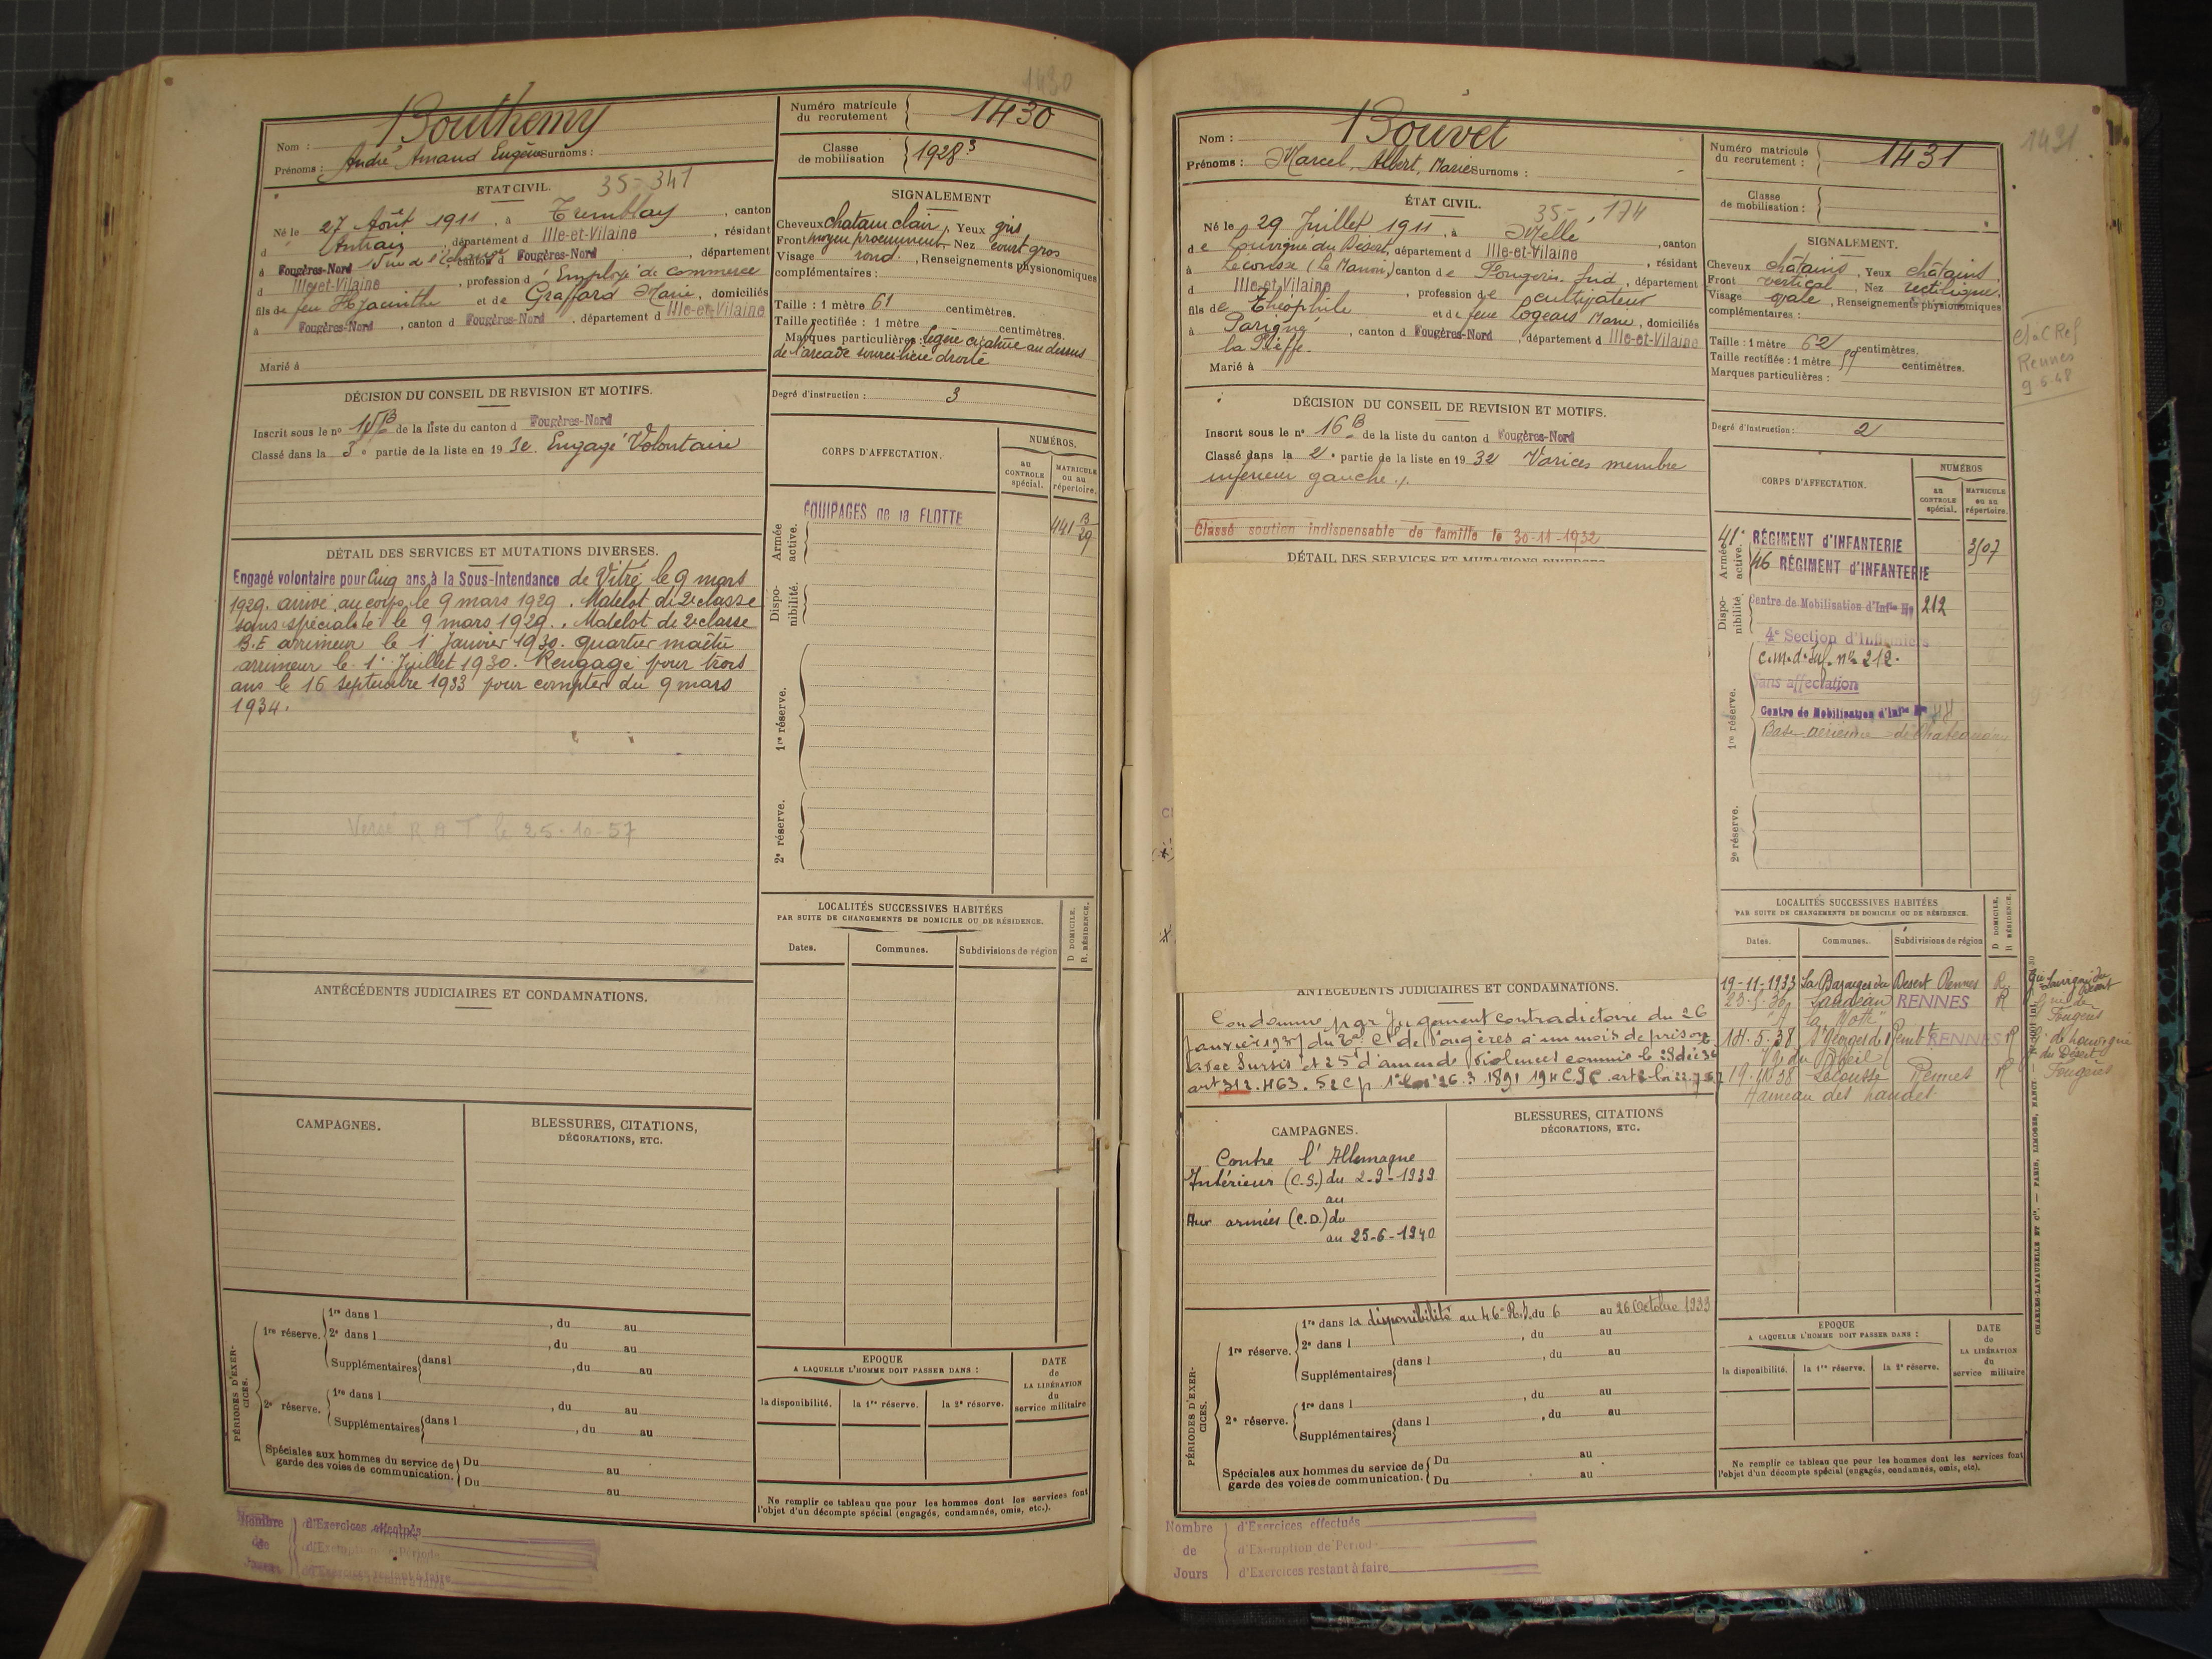 1430
Nom : Bouthemy
Prénoms : André Amand Eugène Surnoms :
Numéro matricule du recrutement 1430
Classe de mobilisation 1928
ETAT CIVIL. 35-341
Né le 27 Août 1911, à Tremblay, canton
d Antrain, département d Ille-et-Vilaine, résidant
à Fougères-Nord canton d Fougères-Nord, département
d Ille-et-Vilaine, profession d Employé de commerce
fils de feu Hyacinthe et de Graffard Marie, domiciliés
à Fougères-Nord, canton d Fougères-Nord, département d Ille-et-Vilaine
Marié à
SIGNALEMENT
Cheveux chatain clair, Yeux gris
Front moyen proeminent Nez court gros
Visage rond, Renseignements physionomiques
complémentaires :
Taille : 1 mètre 61 centimètres.
Taille rectifiée : 1 mètre centimètres.
Marques particulières : légère cicatrice au dessus
de l'arcade sourcilière droite
Degré d'instruction : 3
DÉCISION DU CONSEIL DE REVISION ET MOTIFS.
Inscrit sous le n° 15B de la liste du canton d Fougères-Nord
Classé dans la 3e partie de la liste en 1932. Engagé Volontaire
CORPS D'AFFECTATION.
NUMÉROS.
au CONTROLE spécial.
MATRICULE ou au répertoire.
Armée active.
EQUIPAGES de la FLOTTE
441 B/29
Dispo-nibilité.
1re réserve.
2e réserve.
DÉTAIL DES SERVICES ET MUTATIONS DIVERSES.
Engagé volontaire pour Cinq ans à la Sous-Intendance de Vitré le 9 mars
1929. arrivé au corps le 9 mars 1929. Matelot de 2e classe
sans spécialité le 9 mars 1929. Matelot de 2e classe
B.E arrimeur le 1er Janvier 1930. Quartier maître
arrimeur le 1er Juillet 1930. Rengagé pour trois
ans le 16 septembre 1933 pour compter du 9 mars
1934.
Versé R A T le 25-10-57
LOCALITÉS SUCCESSIVES HABITÉES
PAR SUITE DE CHANGEMENTS DE DOMICILE OU DE RÉSIDENCE.
D DOMICILE.
R. RÉSIDENCE.
Dates. Communes. Subdivisions de région
ANTÉCÉDENTS JUDICIAIRES ET CONDAMNATIONS.
CAMPAGNES.
BLESSURES, CITATIONS,
DÉCORATIONS, ETC.
PÉRIODES D'EXER-CICES.
1re réserve.
1re dans l , du au
2e dans l , du au
Supplémentaires dans l , du au
2e réserve.
1re dans l , du au
Supplémentaires dans l , du au
Spéciales aux hommes du service de garde des voies de communication.
Du au
Du au
EPOQUE
A LAQUELLE L'HOMME DOIT PASSER DANS :
la disponibilité. la 1re réserve. la 2e réserve.
DATE
de
LA LIBÉRATION
du
service militaire
Ne remplir ce tableau que pour les hommes dont les services font
l'objet d'un décompte spécial (engagés, condamnés, omis, etc.).
Nombre de Jours
d'Exercices effectués
d'Exemption de Période
d'Exercices restant à faire
1431
Nom : Bouvet
Prénoms : Marcel, Albert, Marie Surnoms :
Numéro matricule du recrutement : 1431
Classe de mobilisation :
ÉTAT CIVIL. 35-174
Né le 29 Juillet 1911, à Mellé, canton
de Louvigné du Désert, département d Ille-et-Vilaine, résidant
à Lécousse (Le Manoir) canton de Fougères-Sud, département
d Ille-et-Vilaine, profession de cultivateur
fils de Théophile et de feue Logeais Marie, domiciliés
à Parigné, canton d Fougères-Nord, département d Ille-et-Vilaine
Marié à
SIGNALEMENT.
Cheveux châtains, Yeux châtains
Front vertical, Nez rectiligne
Visage ovale, Renseignements physionomiques
complémentaires :
Taille : 1 mètre 62 centimètres.
Taille rectifiée : 1 mètre 59 centimètres.
Marques particulières :
Rennes
9.6.48
Degré d'instruction : 2
DÉCISION DU CONSEIL DE REVISION ET MOTIFS.
Inscrit sous le n° 16B de la liste du canton d Fougères-Nord
Classé dans la 2e partie de la liste en 1932 Varices membre
inférieur gauche.
Classé soutien indispensable de famille le 30-11-1932
DÉTAIL DES SERVICES ET MUTATIONS DIVERSES
CORPS D'AFFECTATION.
NUMÉROS
au CONTROLE spécial.
MATRICULE ou au répertoire.
Armée active.
41e RÉGIMENT d'INFANTERIE 3507
46 RÉGIMENT d'INFANTERIE
Dispo-nibilité
Centre de Mobilisation d'Infie No 212
4e Section d'Infirmiers
C.m.d'Inf. n° 212.
Sans affectation
1re réserve.
Centre de Mobilisation d'Infie No
Base aérienne de
2e réserve.
LOCALITÉS SUCCESSIVES HABITÉES
PAR SUITE DE CHANGEMENTS DE DOMICILE OU DE RÉSIDENCE.
D DOMICILE.
R RÉSIDENCE.
Dates. Communes. Subdivisions de région
19-11-1933 La Bazouges du Desert Rennes R
Landéan RENNES R
14.5.38 St Georges de RENNES R
19. 38 Lécousse Rennes R
Hameau des
Fougères
ANTÉCÉDENTS JUDICIAIRES ET CONDAMNATIONS.
Condamné par Jugement contradictoire du 26
Janvier du de Fougères à un mois de prison
avec Sursis et 25f d'amende Violences
CAMPAGNES.
Contre l'Allemagne
Intérieur (C.S.) du 2-9-1939
au
Aux armées (C.D.) du
au 25-6-1940
BLESSURES, CITATIONS
DÉCORATIONS, ETC.
PÉRIODES D'EXER-CICES.
1re réserve.
1re dans la disponibilité au 46e R.I. du 6 au 26 Octobre 1933
2e dans l , du au
Supplémentaires dans l , du au
2e réserve.
1re dans l , du au
Supplémentaires dans l , du au
Spéciales aux hommes du service de garde des voies de communication.
Du au
Du au
EPOQUE
A LAQUELLE L'HOMME DOIT PASSER DANS :
la disponibilité. la 1re réserve. la 2e réserve.
DATE
de
LA LIBÉRATION
du
service militaire
Ne remplir ce tableau que pour les hommes dont les services font
l'objet d'un décompte spécial (engagés, condamnés, omis, etc).
CHARLES-LAVAUZELLE ET Cie. — PARIS, LIMOGES, NANCY.
Nombre de Jours
d'Exercices effectués
d'Exemption de Période
d'Exercices restant à faire